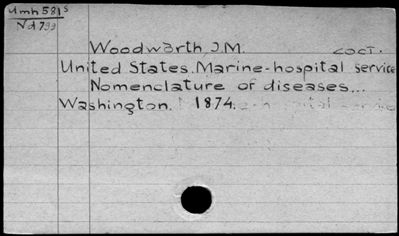 Umh 581s
Nd799
Woodwarth, J.M. COCT.
United States. Marine-hospital service
Nomenclature of diseases...
Washington. 1874.